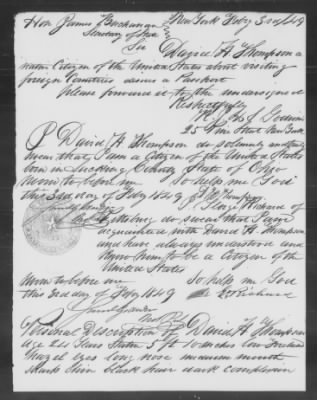 Hon James Buchanan New York Feby 3rd 1849
Secretary of State
Sir David H Thompson a
native Citizen of the United States about visiting
foreign Countries desires a Passport
please forward it to the undersigned
Respectfully
25 Pine Street New York
I David H Thompson do solemnly and
swear that I am a Citizen of the United States
born in Licking County State of Ohio
Sworn to before me So help me God
this 3rd day of Feby 1849
I George Richard of
do swear that I am
acquainted with David H Thompson
and have always understood and
know him to be a Citizen of the
United States
Sworn to before me So help me God
this 3rd day of Feby 1849
Personal Description of David H Thompson
age 24 Years Stature 5 ft 10 inches low forehead
Hazel eyes long nose medium mouth
chin black hair dark complexion